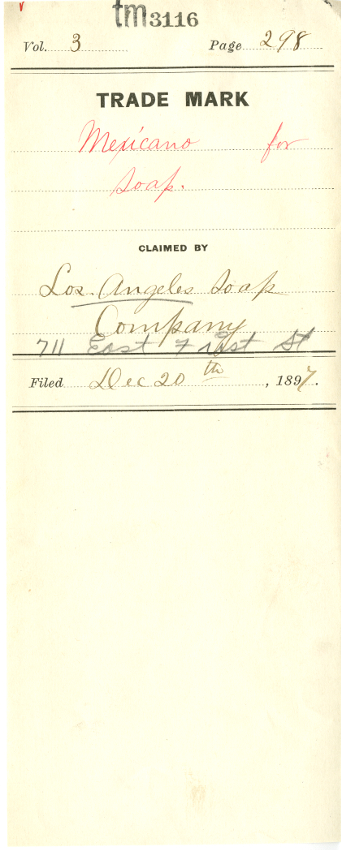 tm3116
Vol. 3 Page 298
TRADE MARK
Mexicano for
Soap.
CLAIMED BY
Los Angeles Soap
Company
711 East First St
Filed Dec 20th, 1897.